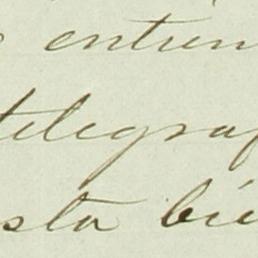 entien
telegraf
sta bie